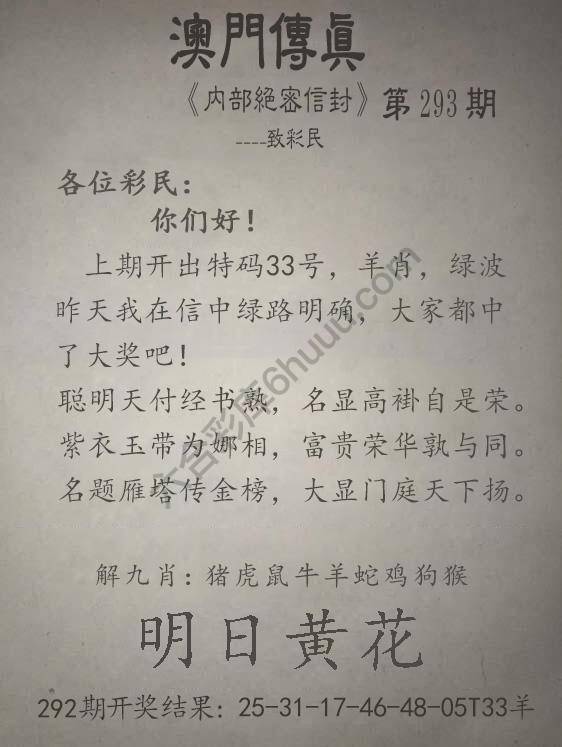 澳門傳眞
《内部絕密信封》第293期
----致彩民
各位彩民：
你们好！
上期开出特码33号，羊肖，绿波
昨天我在信中绿路明确，大家都中
了大奖吧！
聪明天付经书熟，名显高褂自是荣。
紫衣玉带为娜相，富贵荣华孰与同。
名题雁塔传金榜，大显门庭天下扬。
六合彩库6huuu.com
解九肖：猪虎鼠牛羊蛇鸡狗猴
明日黄花
292期开奖结果：25-31-17-46-48-05T33羊